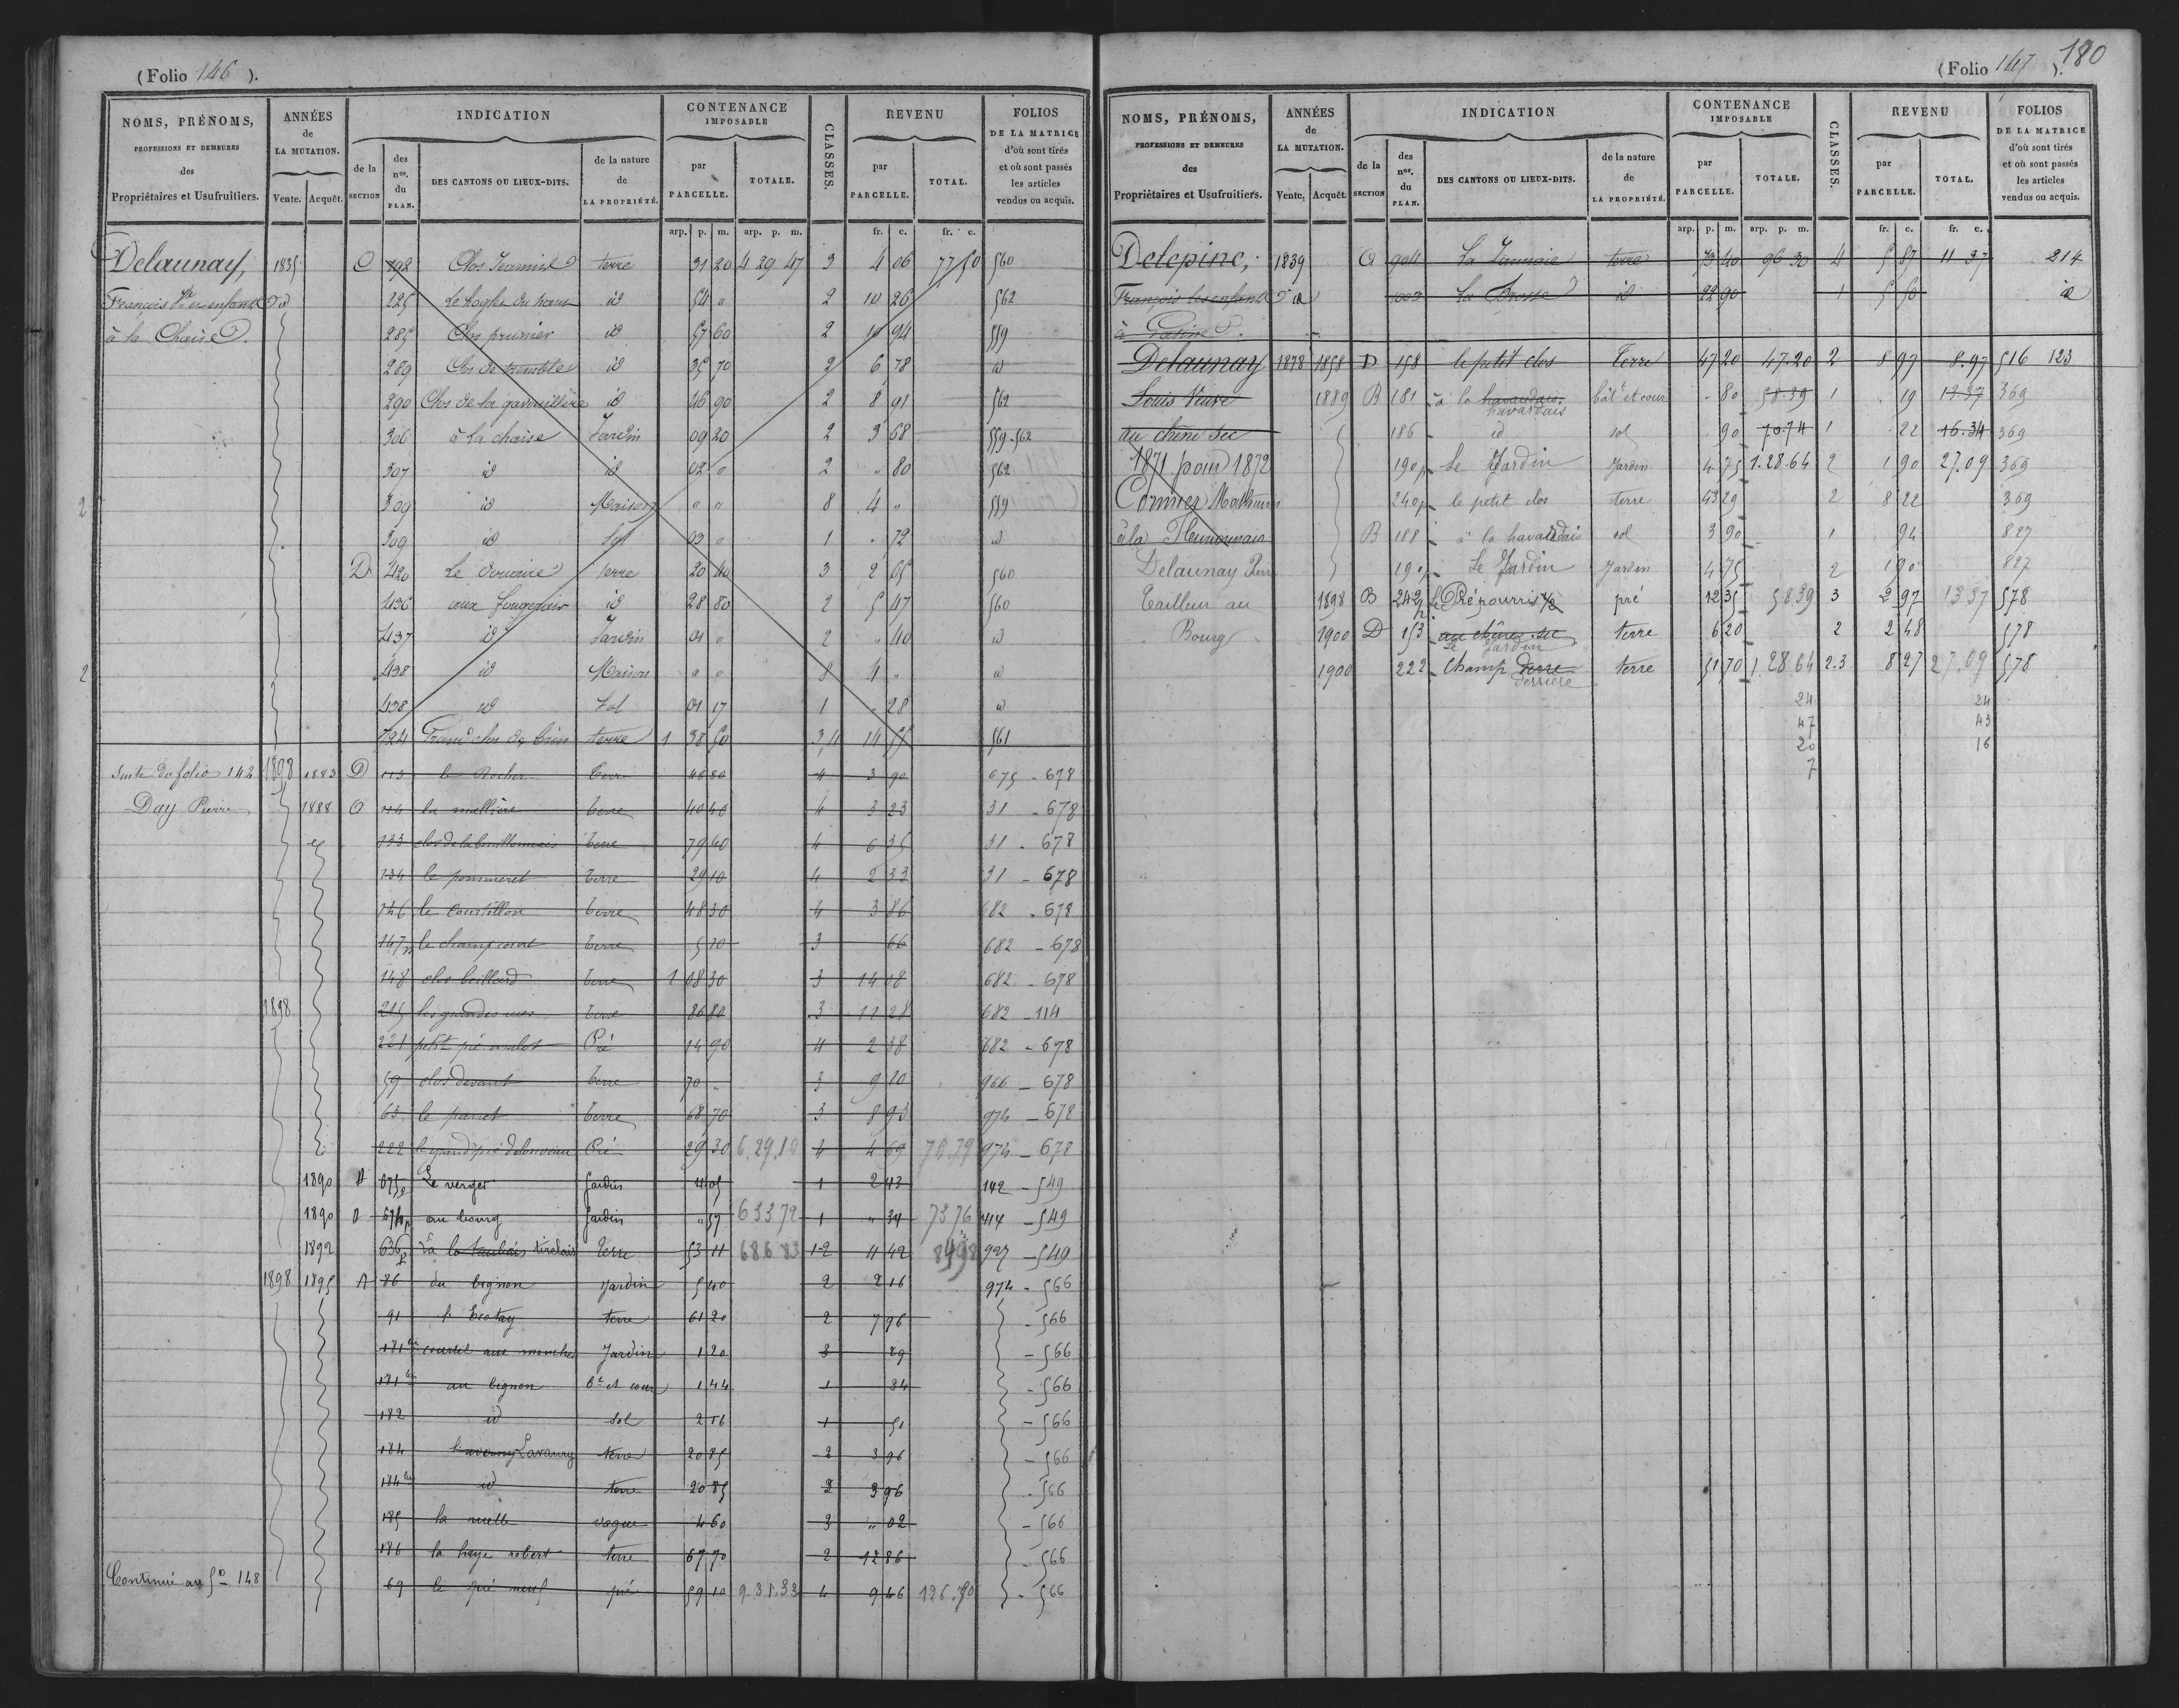 (Folio 146 ).
NOMS, PRÉNOMS, PROFESSIONS ET DEMEURES des Propriétaires et Usufruitiers.
ANNÉES de LA MUTATION. Vente. Acquêt.
INDICATION
de la SECTION
des nos. du PLAN.
DES CANTONS OU LIEUX-DITS.
de la nature de LA PROPRIÉTÉ.
CONTENANCE IMPOSABLE
par PARCELLE. TOTALE.
CLASSES.
REVENU
par PARCELLE. TOTAL.
FOLIOS DE LA MATRICE d'où sont tirés et où sont passés les articles vendus ou acquis.
arp. p. m. arp. p. m. fr. c. fr. c.
Delaunay, 1835 C 192 Clos terre 31 20 4 29 47 3 4 06 77 50 560
François enfants 225 du haut id 54 " 2 10 26 562
à la Chaise 285 Clos prunier id 57 60 2 10 94 559
289 Clos de id 35 70 2 6 78 id
290 Clos de la id 46 90 2 8 91 562
306 à la chaise Jardin 09 20 2 3 68 559.562
307 id id 02 " 2 " 80 562
309 id Maison " " 8 4 " 559
309 id Sol 03 " 1 " 72 id
D 420 Le terre 20 40 3 2 65 560
436 aux id 28 80 2 5 47 560
437 id Jardin 01 " 2 " 40 id
438 id Maison " " 8 4 " id
438 id Sol 01 17 1 " 28 id
724 Grand clos terre 1 38 50 3,4 14 55 561
Suite du folio 142 1898 1883 D 113 le Rocher terre 48 80 4 3 90 675 - 678
Day Pierre 1888 C 114 la mellière terre 40 40 4 3 23 31 - 678
133 clos de la terre 79 40 4 6 35 31 - 678
134 le pommeret terre 29 10 4 2 33 31 - 678
146 le Courtillon terre 48 30 4 3 86 682 - 678
147p le champ court terre 5 10 3 66 682 - 678
148 clos terre 1 08 30 3 14 08 682 - 678
1898 215 les grandes terre 86 80 3 11 28 682 - 114
221 petit pré Pré 14 90 4 2 38 682 - 678
59 clos devant terre 70 " 3 9 10 966 - 678
63 le terre 68 70 3 8 93 974 - 678
222 le grand pré Pré 29 30 6.29.10 4 4 69 974 - 678
1890 D 675p Le verger Jardin 4 05 1 2 43 142 - 549
1890 D 674p au bourg Jardin " 57 6 33 72 1 " 34 73 76 414 - 549
1892 636p à la Terre 53 11 6 86 83 1-2 11 42 84 98 927 - 549
1898 1895 A 86 du bignon Jardin 5 40 2 2 16 974 - 566
91 terre 61 20 2 7 96 - 566
181 bis courtil aux mouches Jardin 1 20 3 29 - 566
181 au bignon bt et cour 1 44 1 34 - 566
182 id sol 2 16 1 51 - 566
184 Lavaury terre 20 85 2 3 96 - 566
184 bis id terre 20 85 2 3 96 - 566
185 la ruelle vague 4 60 3 " 02 - 566
186 la haye robert terre 67 70 2 12 86 - 566
Continué au fo 148 69 le pré neuf pré 59 10 9.31.33 4 9 46 126.90 - 566
(Folio 147 ). 180
NOMS, PRÉNOMS, PROFESSIONS ET DEMEURES des Propriétaires et Usufruitiers.
ANNÉES de LA MUTATION. Vente, Acquêt.
INDICATION
de la SECTION
des nos. du PLAN.
DES CANTONS OU LIEUX-DITS.
de la nature de LA PROPRIÉTÉ.
CONTENANCE IMPOSABLE
par PARCELLE. TOTALE.
CLASSES.
REVENU
par PARCELLE. TOTAL.
FOLIOS DE LA MATRICE d'où sont tirés et où sont passés les articles vendus ou acquis.
arp. p. m. arp. p. m. fr. c. fr. c.
Delepine, 1839 A 904 La Jannaie terre 73 40 96 30 4 5 87 11 37 214
François les enfants id 1003 La Brosse id 22 90 1 5 50 id
à
Delaunay 1878 1858 D 158 le petit clos Terre 47 20 47.20 2 8 97 8.97 516 123
Louis Veuve 1889 B 181 à la havardais bât et cour " 80 58.39 1 19 13 37 369
havardais
au chêne sec 186 id sol " 90 70.74 1 22 16.34 369
1871 pour 1872 190p Le Jardin Jardin 4 75 1.28.64 2 1 90 27.09 369
Cormier Mathurin 240p le petit clos terre 43 29 2 8 22 369
à la B 188 à la havardais sol 3 90 1 94 827
Delaunay Pierre 190p Le Jardin Jardin 4 75 2 1 90 827
Tailleur au 1898 B 242p Le Pré pourri 1/2 pré 12 35 58.39 3 2 97 13 37 578
Bourg 1900 D 153 au chêne sec terre 6 20 2 2 48 578
Le Jardin
1900 222 Champ terre 51 70 1 28 64 2.3 8 27 27.09 578
derrière
24 24
47 43
20 16
7